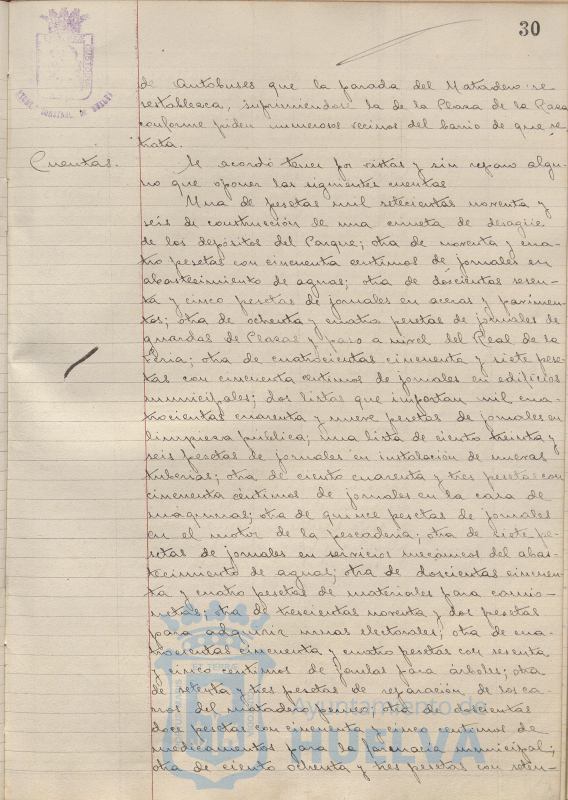 30
de Autobuses que la parada del Matadero se
restablezca, suprimiendose la de la Plaza de la
conforme piden numerosos vecinos del barrio de que se
trata.
Cuentas. Se acordó tener por vistas y sin reparo algu-
no que oponer las siguientes cuentas
Una de pesetas mil setecientas noventa y
seis de construcción de una cuneta de desagüe
de los depósitos del Parque; otra de noventa y cua-
tro pesetas con cincuenta centimos de jornales en
abastecimiento de aguas; otra de doscientas sesen-
ta y cinco pesetas de jornales en aceras y pavimen-
tos; otra de ochenta y cuatro pesetas de jornales de
guardas de Plazas y paso a nivel del Real de la
Feria; otra de cuatrocientas cincuenta y siete pese-
tas con cincuenta centimos de jornales en edificios
municipales; dos listas que importan mil cua-
trocientas cuarenta y nueve pesetas de jornales en
limpieza pública; una lista de ciento treinta y
seis pesetas de jornales en instalación de nuevas
tuberias; otra de ciento cuarenta y tres pesetas con
cincuenta céntimos de jornales en la casa de
máquinas; otra de quince pesetas de jornales
en el motor de la pescaderia; otra de siete pe-
setas de jornales en servicios mecánicos del abas-
tecimiento de aguas; otra de doscientas cincuen-
ta y cuatro pesetas de materiales para camio-
netas; otra de trescientas noventa y dos pesetas
para adquirir urnas electorales; otra de cua-
trocientas cincuenta y cuatro pesetas con sesenta
y cinco centimos de jaulas para árboles; otra
de setenta y tres pesetas de reparación de los ca-
rros del matadero ; otra de doscientas
doce pesetas con cincuenta y cinco centimos de
medicamentos para la farmacia municipal;
otra de ciento ochenta y tres pesetas con seten-
Ayuntamiento de
HUELVA